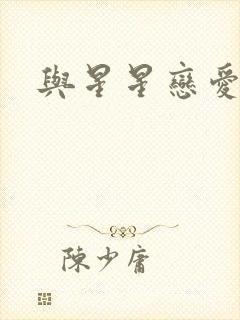 與星星戀愛
陳少庸